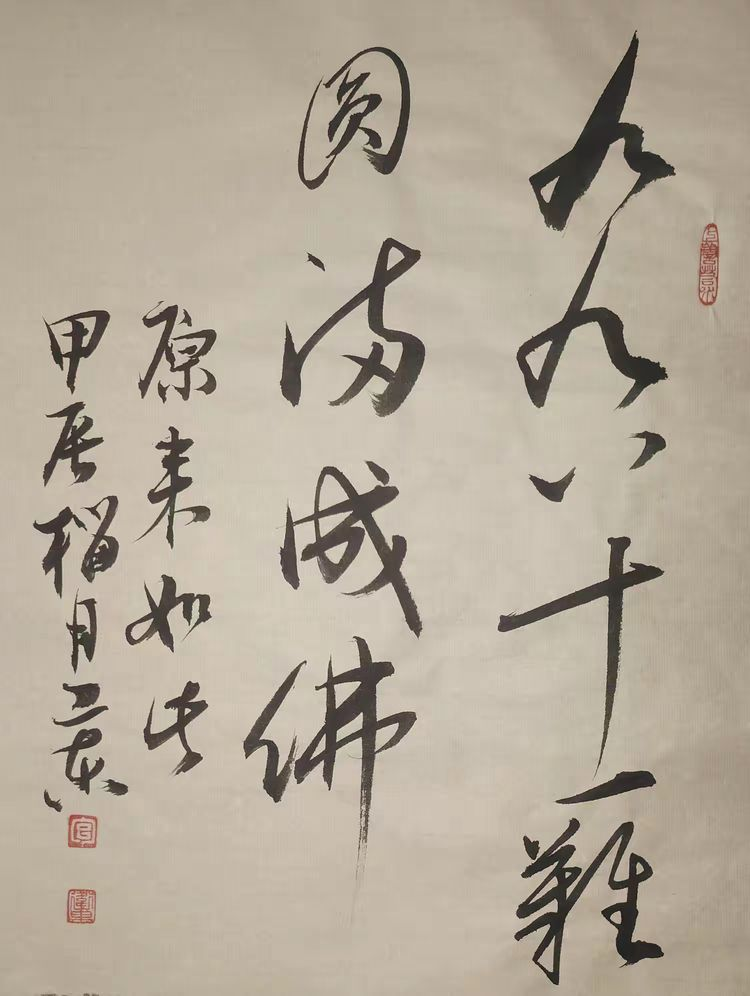 九九八十一難
圆满成佛
原来如此
甲辰榴月